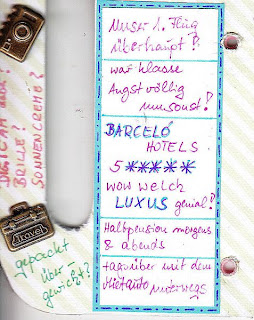 Unser 1. Flug
überhaupt?
war klasse
Angst völlig
umsonst!
BARCELÓ
HOTELS
5 *****
wow welch
LUXUS genial!
Halbpension morgens
& abends
tagsüber mit dem
Mietauto unterwegs
DIGICAM
BRILLE!
SONNENCREME?
Travel
gepackt
über-
gewicht?